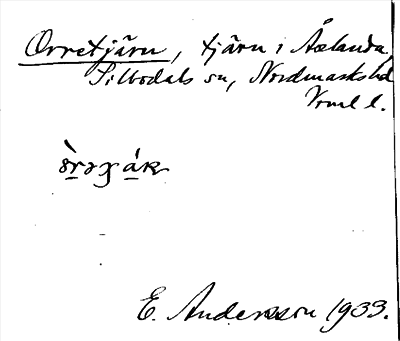 Orretjärn, tjärn i Åslanda,
Silbodals sn, Nordmarks hd
Vrml l.
E. Andersson 1933.